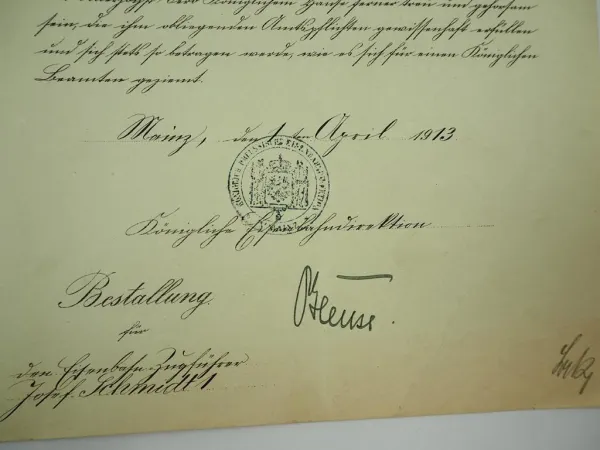 und Königlichem Hause ferner treu und gehorsam
sein, die ihm obliegenden Amtspflichten gewissenhaft erfüllen
und sich stets so betragen werde, wie es sich für einen Königlichen
Beamten geziemt.
Mainz, den 1ten April 1913
Königliche Eisenbahndirektion
Bestallung
für
den Eisenbahn-Zugführer
Josef Schmidt 1